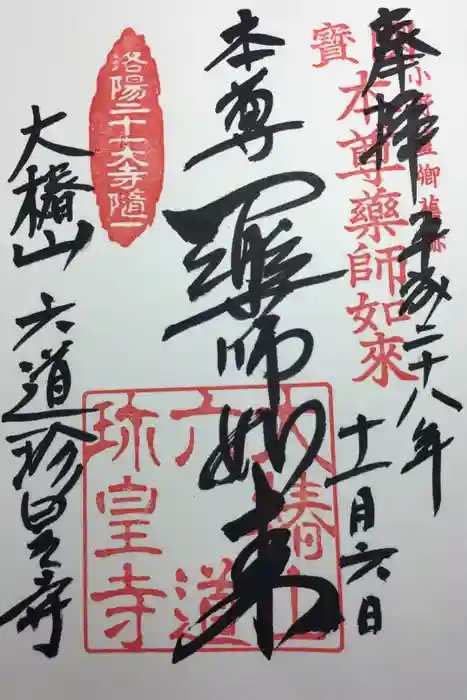 奉拝
平成二十八年
十一月六日
本尊
薬師如来
大椿山
六道珍皇寺
國寶
本尊藥師如來
小野篁卿
洛陽二十大寺随一
大椿山
六道
珎皇寺